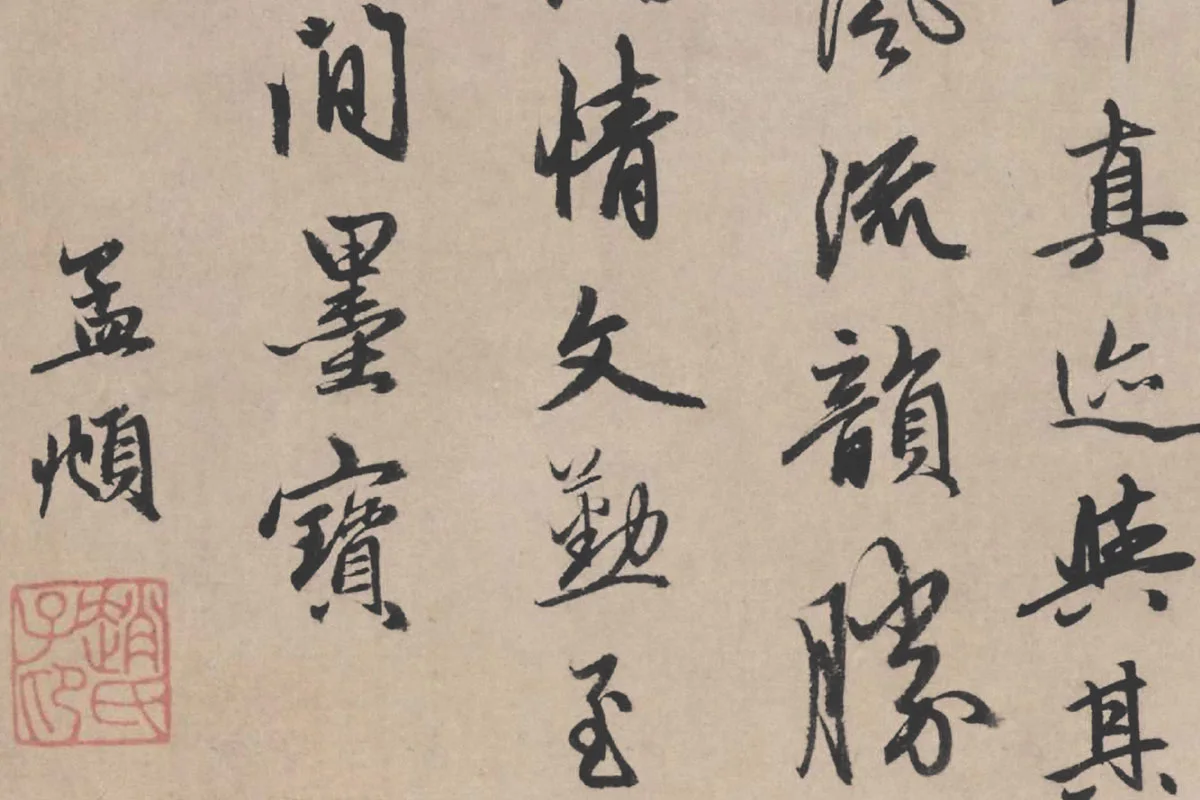 真迹與其
風流韻勝
情文勤至
間墨寶
孟頫
趙氏子昂